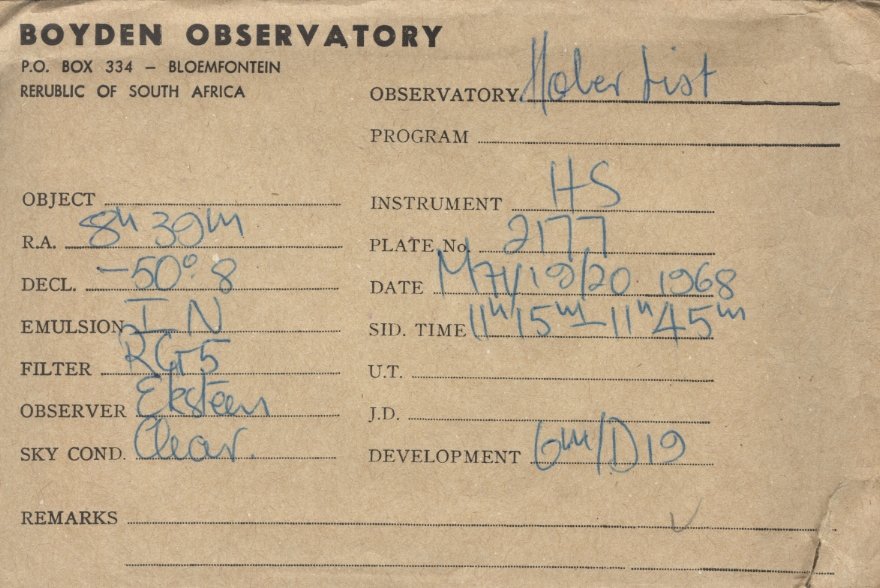 BOYDEN OBSERVATORY
P.O. BOX 334 – BLOEMFONTEIN
RERUBLIC OF SOUTH AFRICA
OBSERVATORY Hoher List
PROGRAM
OBJECT
INSTRUMENT HS
R.A. 8h 39m
PLATE No. 2177
DECL. -50°8
DATE May/19/20 1968
EMULSION I N
SID. TIME 11h15m–11h45m
FILTER RG5
U.T.
OBSERVER Eksteen
J.D.
SKY COND. Clear.
DEVELOPMENT 6m/D19
REMARKS